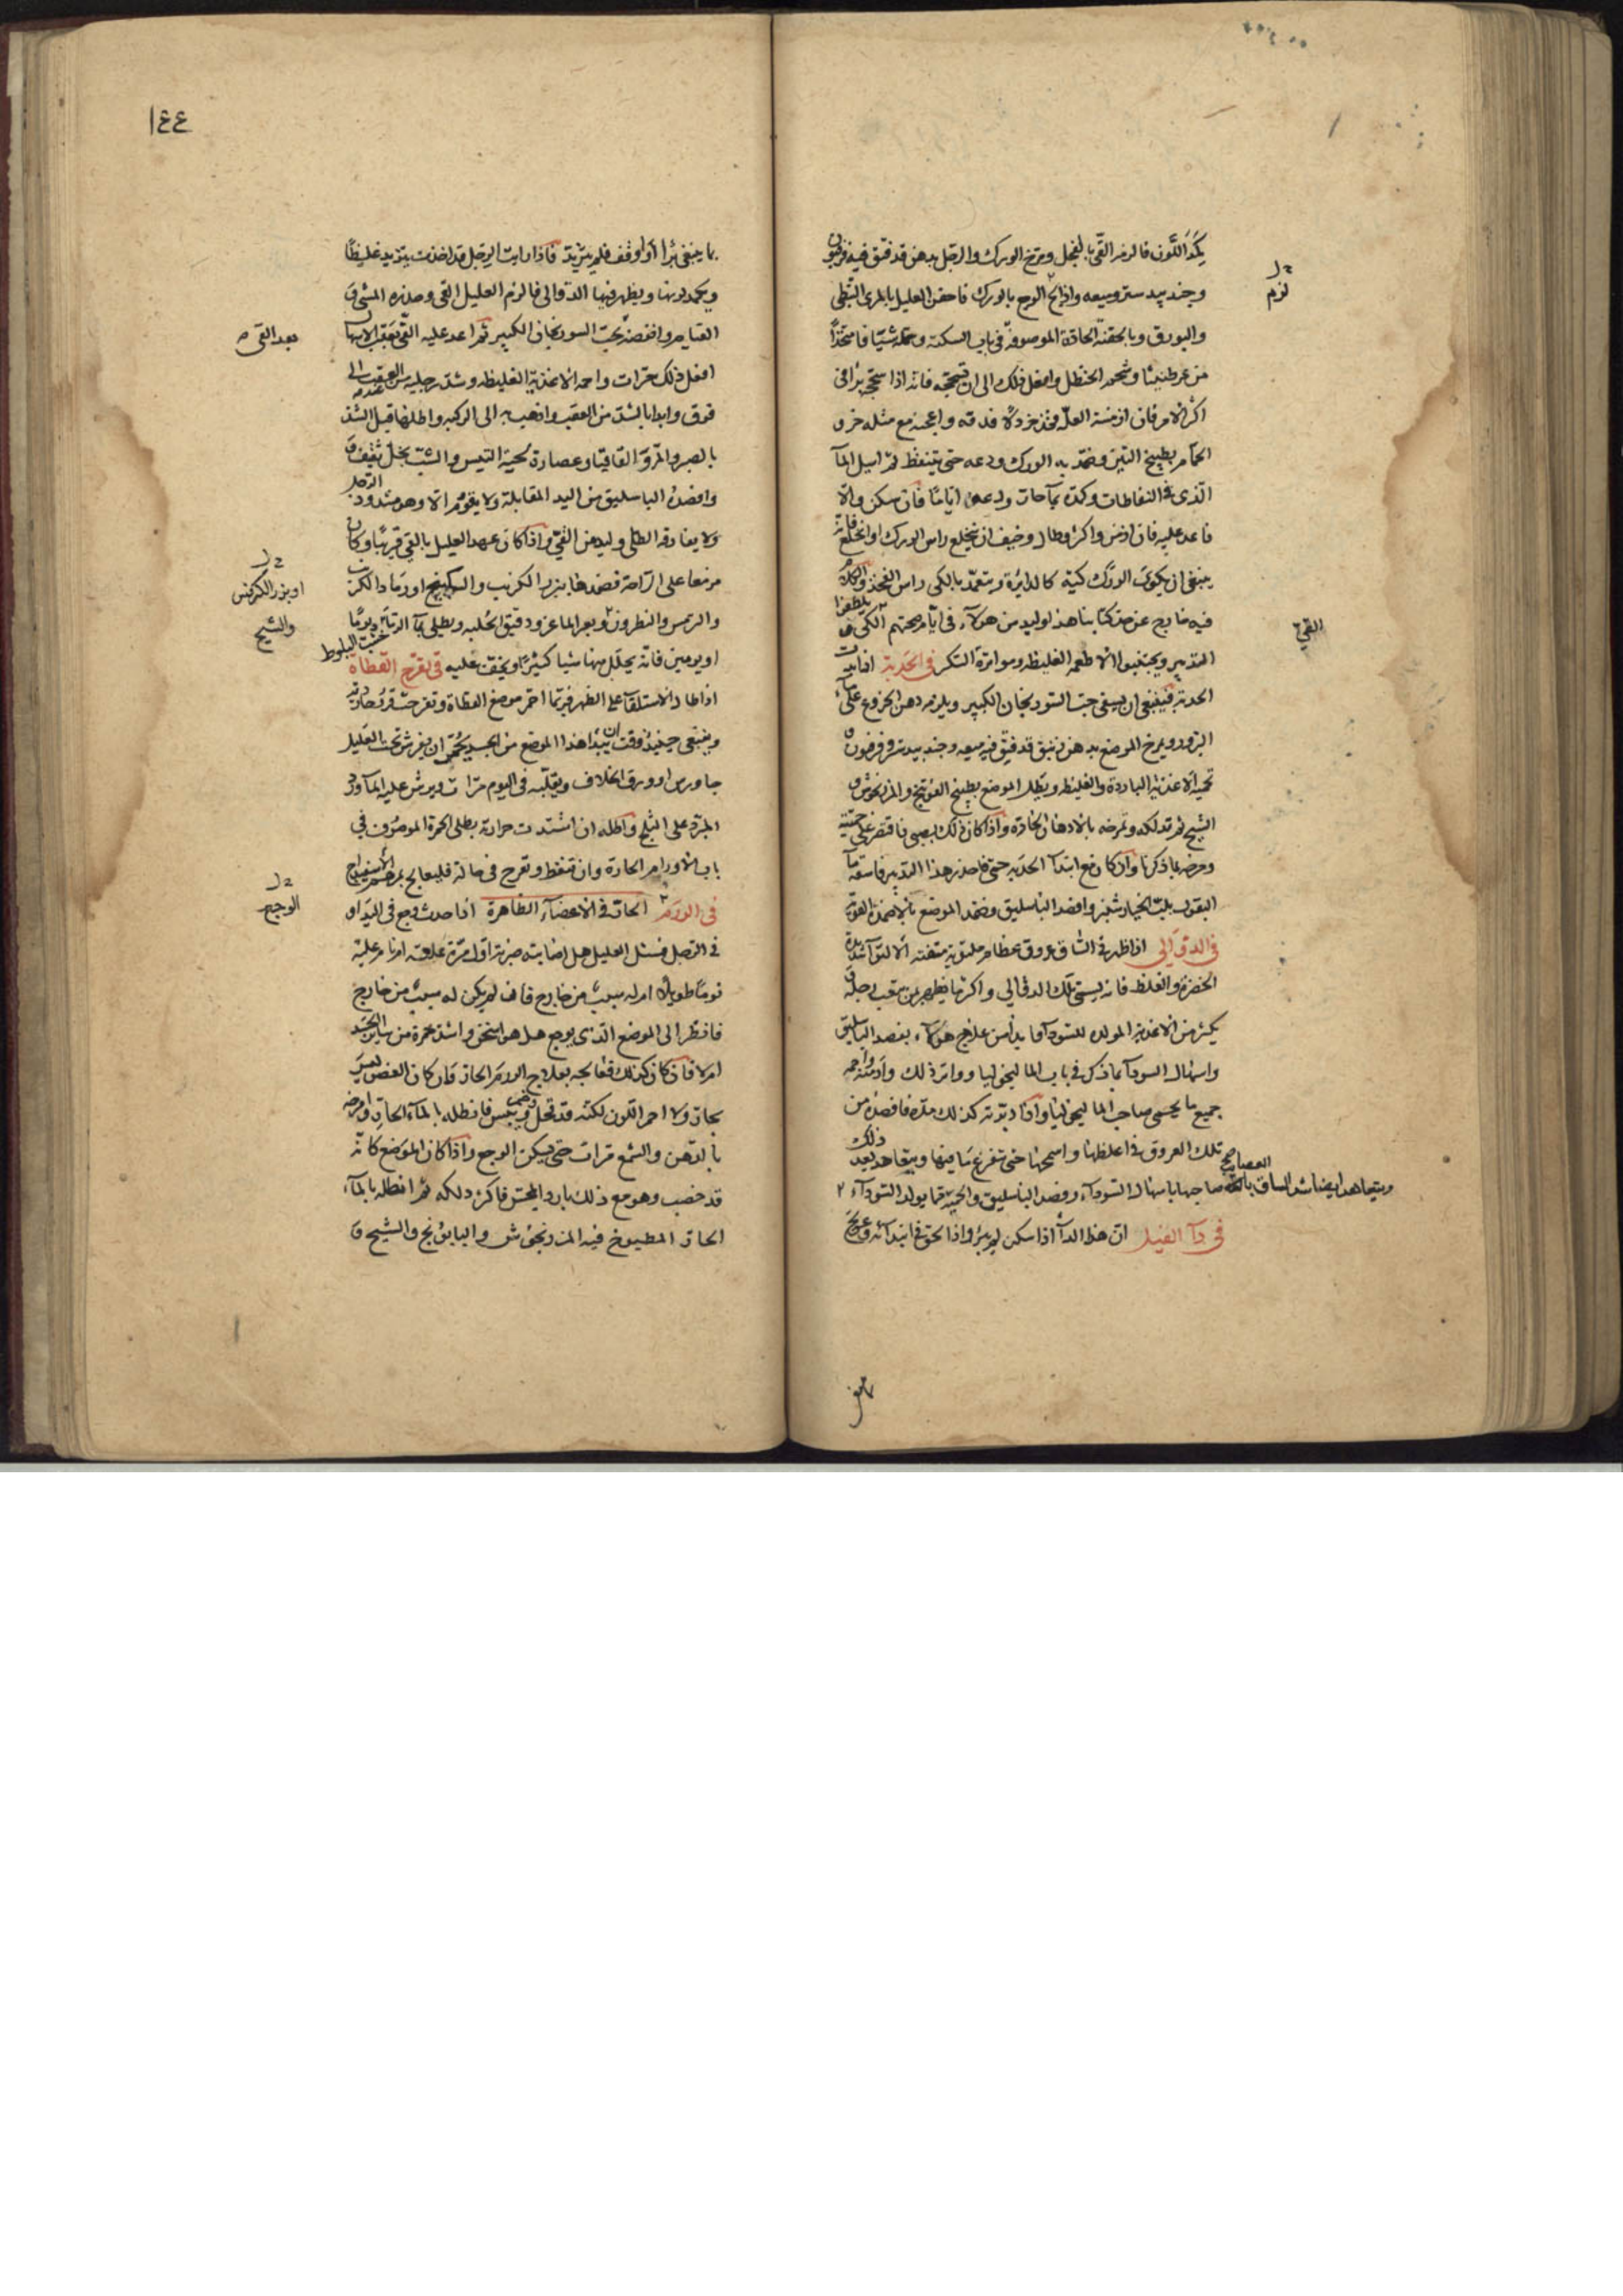 يكمد اللون فالزمه القي بالفجل ومرخ الورك والرجل بدهن قد فتق فيه فرفيون
وجندبيدستر وميعه واذا لح الوجع بالورك فاحقن العليل بالمري النبطي
والبورق وبالحقنة الحادة الموصوفة في باب السكتة وحمله شيافا متخذا
من عرطنيثا وشحم الحنظل وافعل ذلك الى ان تسحجه فانه اذا سحج برا في
اكثر الامر فان ازمنت العلة فخذ خردلا فدقه واعجنه مع مثله خرو
الحمام بطبيخ التين وضمد به الورك ودعه حتى يتنفط ثم اسيل المآ
الذي في النفاطات وكمده بمآ حار ودعه اياما فان سكن والا
فاعد عليه فان ازمن واكثر وطال وخيف ان ينخلع راس الورك او انخلع فانه
ينبغي ان يكوى الورك كية كالدايرة ويتعمد بالكي راس الفخذ والكلام
فيه خارج عن حد كتابنا هذا وليدمن هولآء في ايام صحتهم الكي و
التدبير ويجتنبوا الاطعمه الغليظه ومواترة السكر في الحدبة اذا ابتدت
الحدبة فينبغي ان يسقي حب السورنجان الكبير ويلزمه دهن الخروع على مآء
البزور ويمرخ الموضع بدهن زنبق قد فتق فيه ميعه وجندبيدستر وفرفيون و
تحميه الاغذية الباردة والغليظه وينطل الموضع بطبيخ الفوتنج والمرزنجوش و
الشيح ثم تدلكه وتمرخه بالادهان الحادة واذا كان ذلك بصبي فاقتصر على حميته
ومرخه بما ذكرنا واذا كان مع ابتدآ الحدبه حمى فاحذر هذا التدبير فاسقه مآ
البقول بلب الخيارشنبر وافصد الباسليق وضمد الموضع بالاضمدة القوية
في الدوالي اذا ظهر في الساق عروق عظام ملتوية متفننه الالتوآ شديدة
الخضرة والغلظ فانه يسمى تلك الدوالي واكثر ما يظهر بمن يتعب رجله و
يكثر من الاغذية المولده للسودآ فابدا من علاج هولآء بفصد الباسليق
واسهال السودآ بما ذكر في باب الماليخوليا وواتر ذلك وادمنه واحمه
جميع ما يحمى صاحب الماليخوليا واذا دبرته كذلك مدة فافصده من
تلك العروق في اعظمها وامسحها حتى تفرغ ما فيها ويتعاهد بعد ذلك
صاحبها باسهال السودآء وفصد الباسليق والحمية مما يولد السودآء
في دآ الفيل ان هذا الدآ اذا سكن لم يبرؤ واذا لحق في ابتدائه وعولج
لزم
القي
ويتعاهد ايضا شد الساق بالعصايب
١٤٤
بما ينبغي برا او وقف فلم يتزيد فاذا رايت الرجل قد اخذت يتزيد غليظا
ويكمد لونها ويظهر فيها الدوالي فالزم العليل القي وحذره المشي و
القيام وافضه بحب السورنجان الكبير ثم اعد عليه القي عقب الاسهال
افعل ذلك مرات واحمه الاغذية الغليظه وشد رجليه من العقب الى
فوق وابدا بالشد من العقب واذهب به الى الركبه واطلها قبل الشد
بالصبر والمر والقاقيا وعصارة لحية التيس والشب بخل ثقيف و
وافصده الباسليق من اليد المقابلة ولا يقوم الا وهو مشدود الرجل
ولا يفارقه الطلي وليدمن القي واذا كان عهد العليل بالقي قريبا وكان
مرتفعا على الراحة فضمدها ببزر الكرنب والسكبينج او رماد الكرنب
والترمس والنطرون وبعر الماعز ودقيق الحلبه ويطلى بمآ الرماد يوما
او يومين فانه يحلل منها شيا كثيرا ويخف عليه في تقرح القطاة
اذا طال الاستلقآ على الظهر فربما احمر موضع القطاة وتقرحت قروح حارة
وينبغي حينئذ وقت ان يبدا هذا الموضع من الجسد يحمر ان يفرش تحت العليل
جاورس او ورق الخلاف ويقلبه في اليوم مرات ويرش عليه المآ ورد
المبرد على الثلج واطله ان اشتدت حرارته بطلى الحمرة الموصوف في
باب الاورام الحارة وان تنفط وتقرح في حاله فليعالج بمرهم الاسفيداج
في الورم الحار في الاعضآء الظاهرة اذا حدث وجع في اليد او
في الرجل فسئل العليل هل اصابته ضربة او امرة علاقة او نام عليه
نوما طويلا ام له سبب من خارج فان لم يكن له سبب من خارج
فانظر الى الموضع الذي يوجع هل هو اسخن واشد حمرة من ساير الجسد
ام لا فان كان كذلك فعالجه بعلاج الورم الحار فان كان العضو ليس
بحار ولا احمر اللون لكنه قد قحل ويبس فانطله بالمآء الحار وامرخه
بالدهن والشمع مرات حتى يسكن الوجع واذا كان الموضع كانه
قد خصب وهو مع ذلك بارد المجس فاكثر دلكه ثم انطله بالمآء
الحار المطبوخ فيه المرزنجوش والبابونج والشيح و
بعد القي
او بزر الكرفس
والشيح
خشب البلوط
الوجع